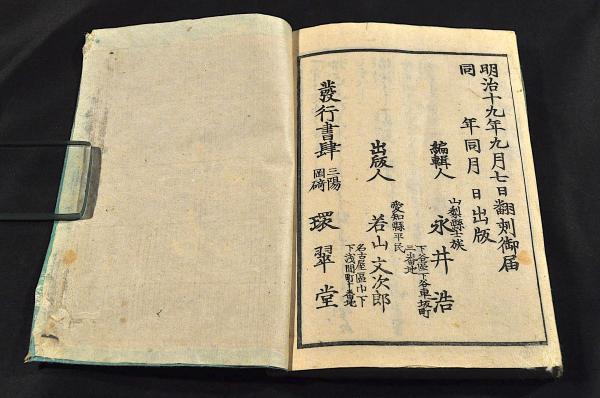 明治十九年九月七日翻刻御届
同年同月 日出版
編輯人
山梨縣士族
永井浩
下谷區下谷車坂町
三番地
出版人
愛知縣平民
若山文次郎
名古屋區巾下
下浅間町
發行書肆
三陽
岡﨑
環翠堂